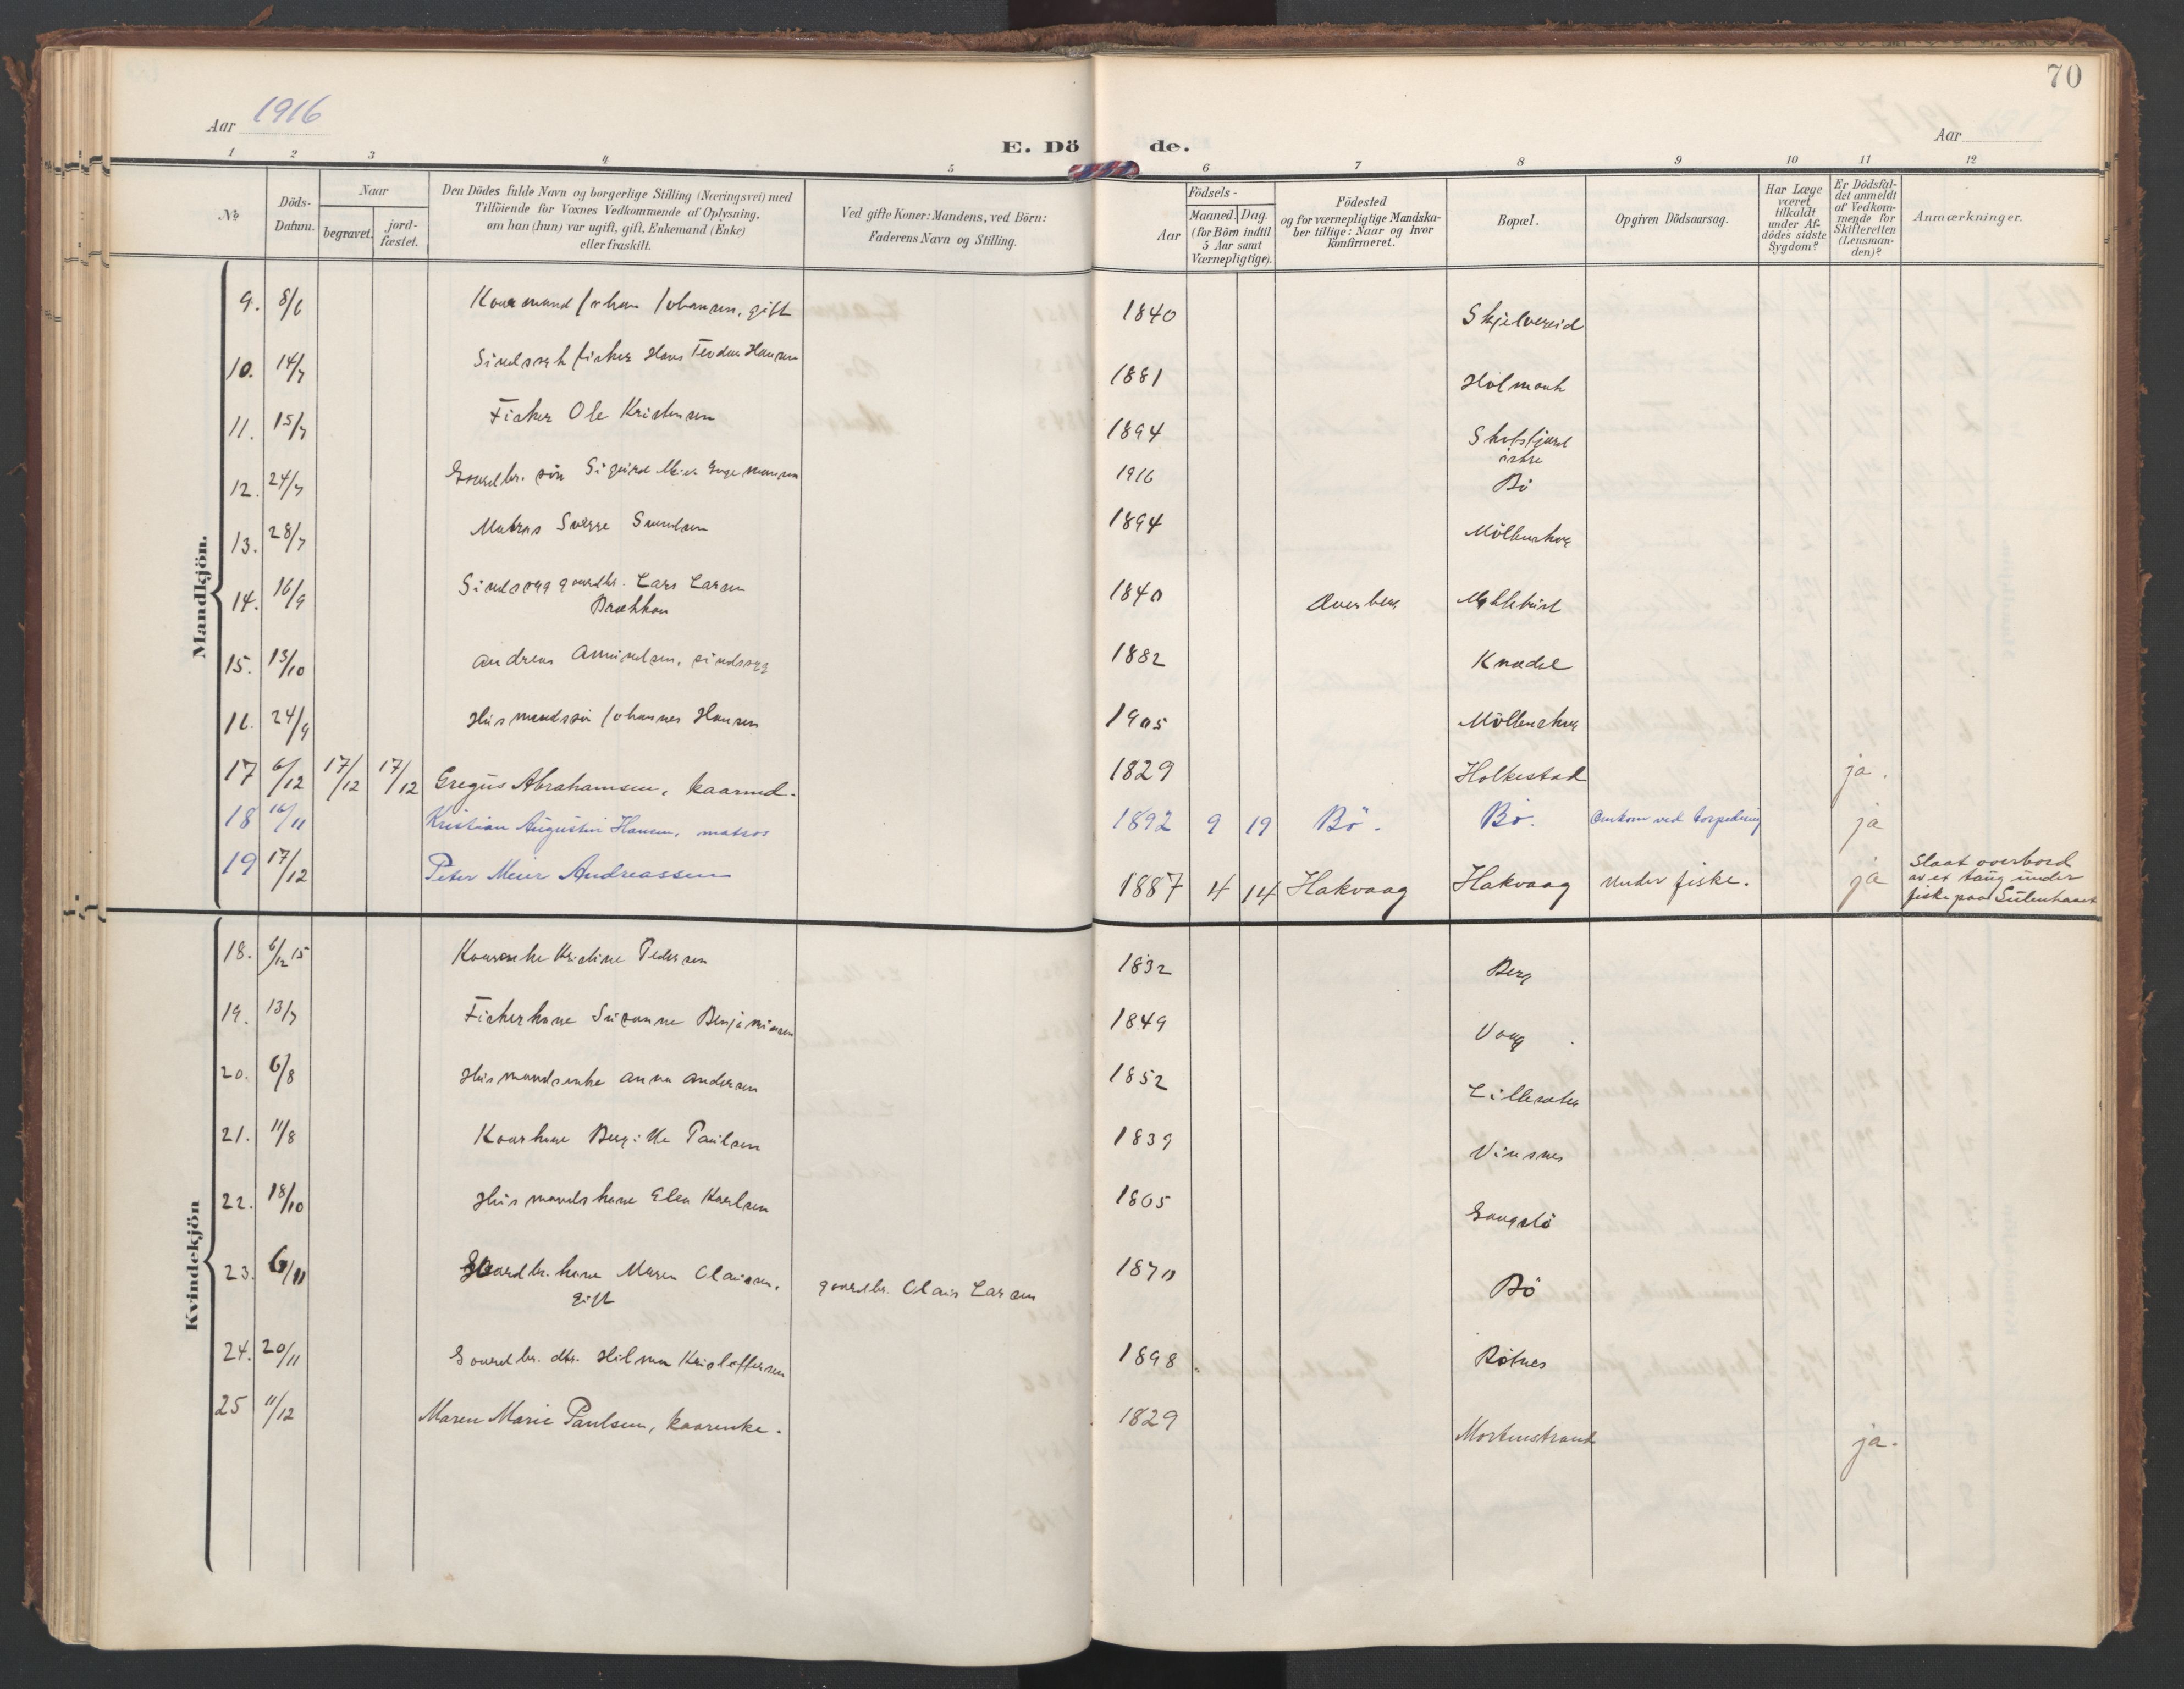 70
Aar 1916
Aar
E. Döde.
1 2 3 4 5 6 7 8 9 10 11 12
No
Döds-
Datum.
Naar
begravet.
jord-
fæstet.
Den Dödes fulde Navn og borgerlige Stilling (Næringsvei) med
Tilföiende for Voxnes Vedkommende af Oplysning,
om han (hun) var ugift, gift, Enkemand (Enke)
eller fraskilt.
Ved gifte Koner: Mandens, ved Börn:
Faderens Navn og Stilling.
Födsels-
Aar
Maaned. Dag.
(for Börn indtil
5 Aar samt
Værnepligtige).
Födested
og for værnepligtige Mandska-
ber tillige: Naar og hvor
konfirmeret.
Bopæl.
Opgiven Dödsaarsag.
Har Læge
været
tilkaldt
under Af-
dödes sidste
Sygdom?
Er Dödsfal-
det anmeldt
af Vedkom-
mende for
Skifteretten
(Lensman-
den)?
Anmærkninger.
Mandkjön.
9. 8/6 Johan Johansen, gift 1840 Skjelvereid
10. 14/7 Sindssyk fisker Hans Teodor Hansen 1881 Holmank
11. 15/7 Fisker Ole Kristensen 1894
12. 24/7 Gaardbr. sön Sigurd Meier Ingemansen 1916 Bö
13. 28/7 Matros Sverre 1894
14. 16/9 Sindssyg gaardbr. Lars Larsen 1840
15. 13/10 Andreas Amundsen, sindssyg 1882
16. 24/9 Husmandssön Johannes Hansen 1905
17 6/12 17/12 17/12 Gregus Abrahamsen, kaarmd. 1829 Holkestad ja.
18 16/11 Kristian Augustin Hansen, matros 1892 9 19 Bö. Bö. Omkom ved torpedering ja
19 17/12 Peter Meier Andreassen 1887 4 14 Hakvaag Hakvaag Under fiske. ja Slaat overbord
av et taug under
fiske paa
Kvindekjön
18. 6/12 15 Kaarenke Kristine Pedersen 1832 Berg
19. 13/7 Fiskerkone Susanne Benjaminsen 1849 Vaag
20. 6/8 Husmandsenke Anna Andersen 1852
21. 11/8 Kaarkone Bergitte Paulsen 1839 Vinsnes
22. 18/10 Husmandskone Elen Karlsen 1805
23. 6/11 Gaardbr. kone Maren Clausen, gaardbr. Claus Larsen 1870 Bö
gift
24. 20/11 Gaardbr. dtr. Hilma Kristoffersen 1898 Rötnes
25 11/12 Maren Marie Paulsen, kaarenke. 1829 Mortenstrand ja.